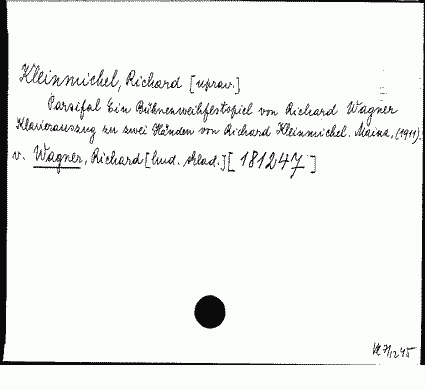 Kleinmichel, Richard [uprav.]
Parsifal Ein Bühnenweihfestspiel von Richard Wagner
Klavierauszug zu zwei Händen von Richard Kleinmichel. Mainz, (1911).
v. Wagner, Richard [hud. sklad.] [181247]
7/12 45